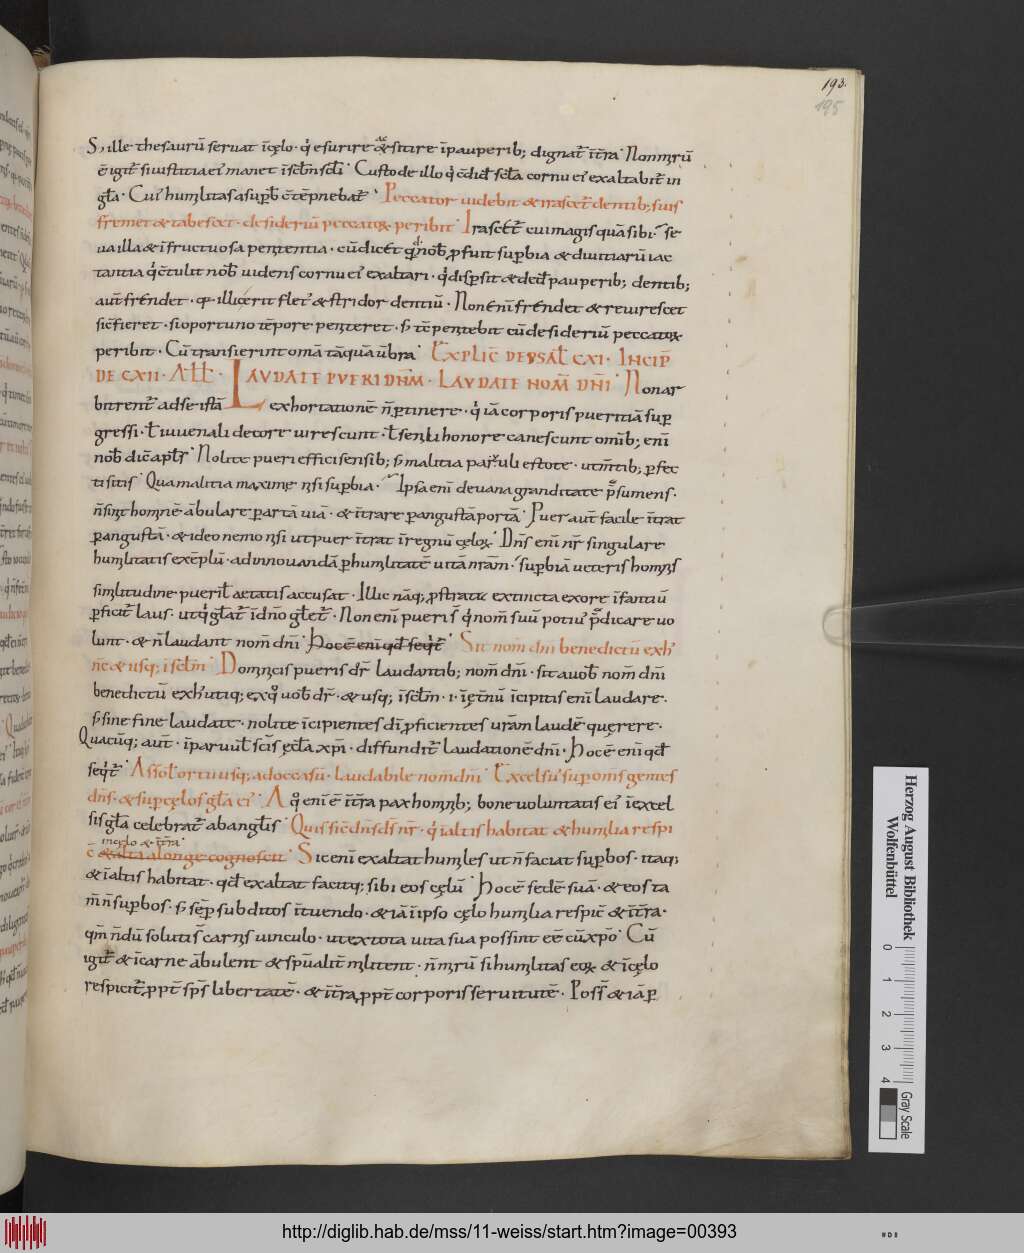 193.
195
S; ille thesaurū seruat ī cęlo · q̇ esurire & sitire ī pauperib; dignat̄ ī t̄ra · Non mirū
ē igit̄ si iustitia ei' manet ī sc̄lm sc̄li · Custode illo q̇ c̄did̄ sc̄la cornu ei' exaltabit̄ in
gl̄a · Cui' humilitas a sup̄b c̄tēpnebat̄ · Peccator uidebit & irascet̄ dentib; suis
fremet & tabescet · desideriū peccatoꝝ peribit · Irascet̄ cui magis quā sibi · se
ua illa & īfructuosa penitentia · cū dicet qd nob̄ ꝓfuit suꝑbia & diuitiarū iac
tantia q̇ c̄tulit nob̄ uidens cornu ei' exaltari · q̇ disꝑsit & ded̄ pauperib; dentib;
aut̄ frendet · qꝫ illic erit flet' & stridor dentiū · Non enī frendet & reuirescet
sic̄ fieret · si oportuno tēpore peniteret · sꝫ tc̄ penitebit cū desideriū peccatoꝝ
peribit · Cū transierint omā tāquā ūbra · EXPLIC̄ DE PSAL̄ CXI · INCIP̄
DE CXII · ALL̄ · LAVDATE PVERI DN̄M · LAVDATE NOM̄ DN̄I · Non ar
bitrent̄ ad se istā exhortationē n̄ ꝑtinere · q̇ iā corporis pueritiā suꝑ
gressi · ł iuuenali decore uirescunt · ł senili honore canescunt omīb; enī
nob̄ dic̄ apl̄s · Nolite pueri effici sensib; sꝫ malitia paruuli estote · ut m̄tib; ꝑfec
ti sitis · Qua malitia maxime nisi suꝑbia · Ipsa enī de uana granditate p̄sumens ·
n̄ sinit hominē ābulare ꝑ artā uiā · & ītrare ꝑ angustā portā · Puer aut̄ facile ītrat
ꝑ angustā · & ideo nemo nisi ut puer ītrat ī regnū cęloꝝ · Dn̄s enī nr̄ singulare
humilitatis exēplū · ad innouandā ꝑ humilitatē uitā nr̄am · suꝑbiā ueteris hominis
similitudine pueril̄ aetatis accusat · Illic nāq; ꝓstrata extincta ex ore īfantiū
ꝑficit̄ laus · ut q̇ gl̄at̄ ī dn̄o gl̄et̄ · Non enī pueris q̇ nom̄ suū poti' p̄dicare uo
lunt · & n̄ laudant nom̄ dn̄i · Hoc ē enī qd̄ seq̇t̄ · Sit nom̄ dn̄i benedictū ex h'
nc̄ & usq; ī sc̄lm · Dominicis pueris dr̄ laudantib; nom̄ dn̄i · sit a uob̄ nom̄ dn̄i
benedictū ex h' utiq; ex q̊ uob̄ dr̄ · & usq; ī sc̄lm · i · ī ęt̄nū īcipitis enī laudare ·
sꝫ sine fine laudate · nolite īcipientes dī ꝓficientes ur̄am laudē querere ·
Quacūq; aut̄ · ī paruul̄ sc̄is eccl̄a xp̄i · diffundit̄ laudationē dn̄i · Hoc ē enī qd̄
seq̇t̄ · A sol̄ ortu usq; ad occasū · laudabile nom̄ dn̄i · Excels' suꝑ om̄s gentes
dn̄s · & suꝑ cęlos gl̄a ei' · A q̊ enī ē ī t̄ra pax hominib; bone uoluntatis ei' ī excel
sis gl̄a celebrat̄ ab angl̄is · Quis sic̄ dn̄s ds̄ nr̄ · q̇ ī altis habitat & humilia respi
in cęlo & ī t̄ra ·
c̄ & alta a longe cognoscit · Sic enī exaltat humiles ut n̄ faciat suꝑbos · itaq;
& ī altis habitat · qd̄ exaltat facitq; sibi eos cęlū · Hoc ē sedē suā · & eos ta
m̄ n̄ suꝑbos · sꝫ seꝑ subditos ītuendo · & iā ī ipso cęlo humilia respic̄ & ī t̄ra ·
qm̄ n̄dū solutis carnis uinculo · ut ex tota uita sua possint eē cū xp̄o · Cū
igit̄ & ī carne ābulent & sp̄ualit̄ militent · n̄ mirū si humilitas eoꝝ & ī cęlo
respicit̄ ꝓpt̄ sp̄s libertatē · & ī t̄ra ꝓpt̄ corporis seruitutē · Poss̄ & iā ꝑ
Herzog August Bibliothek
Wolfenbüttel
0 1 2 3 4
Gray Scale
http://diglib.hab.de/mss/11-weiss/start.htm?image=00393